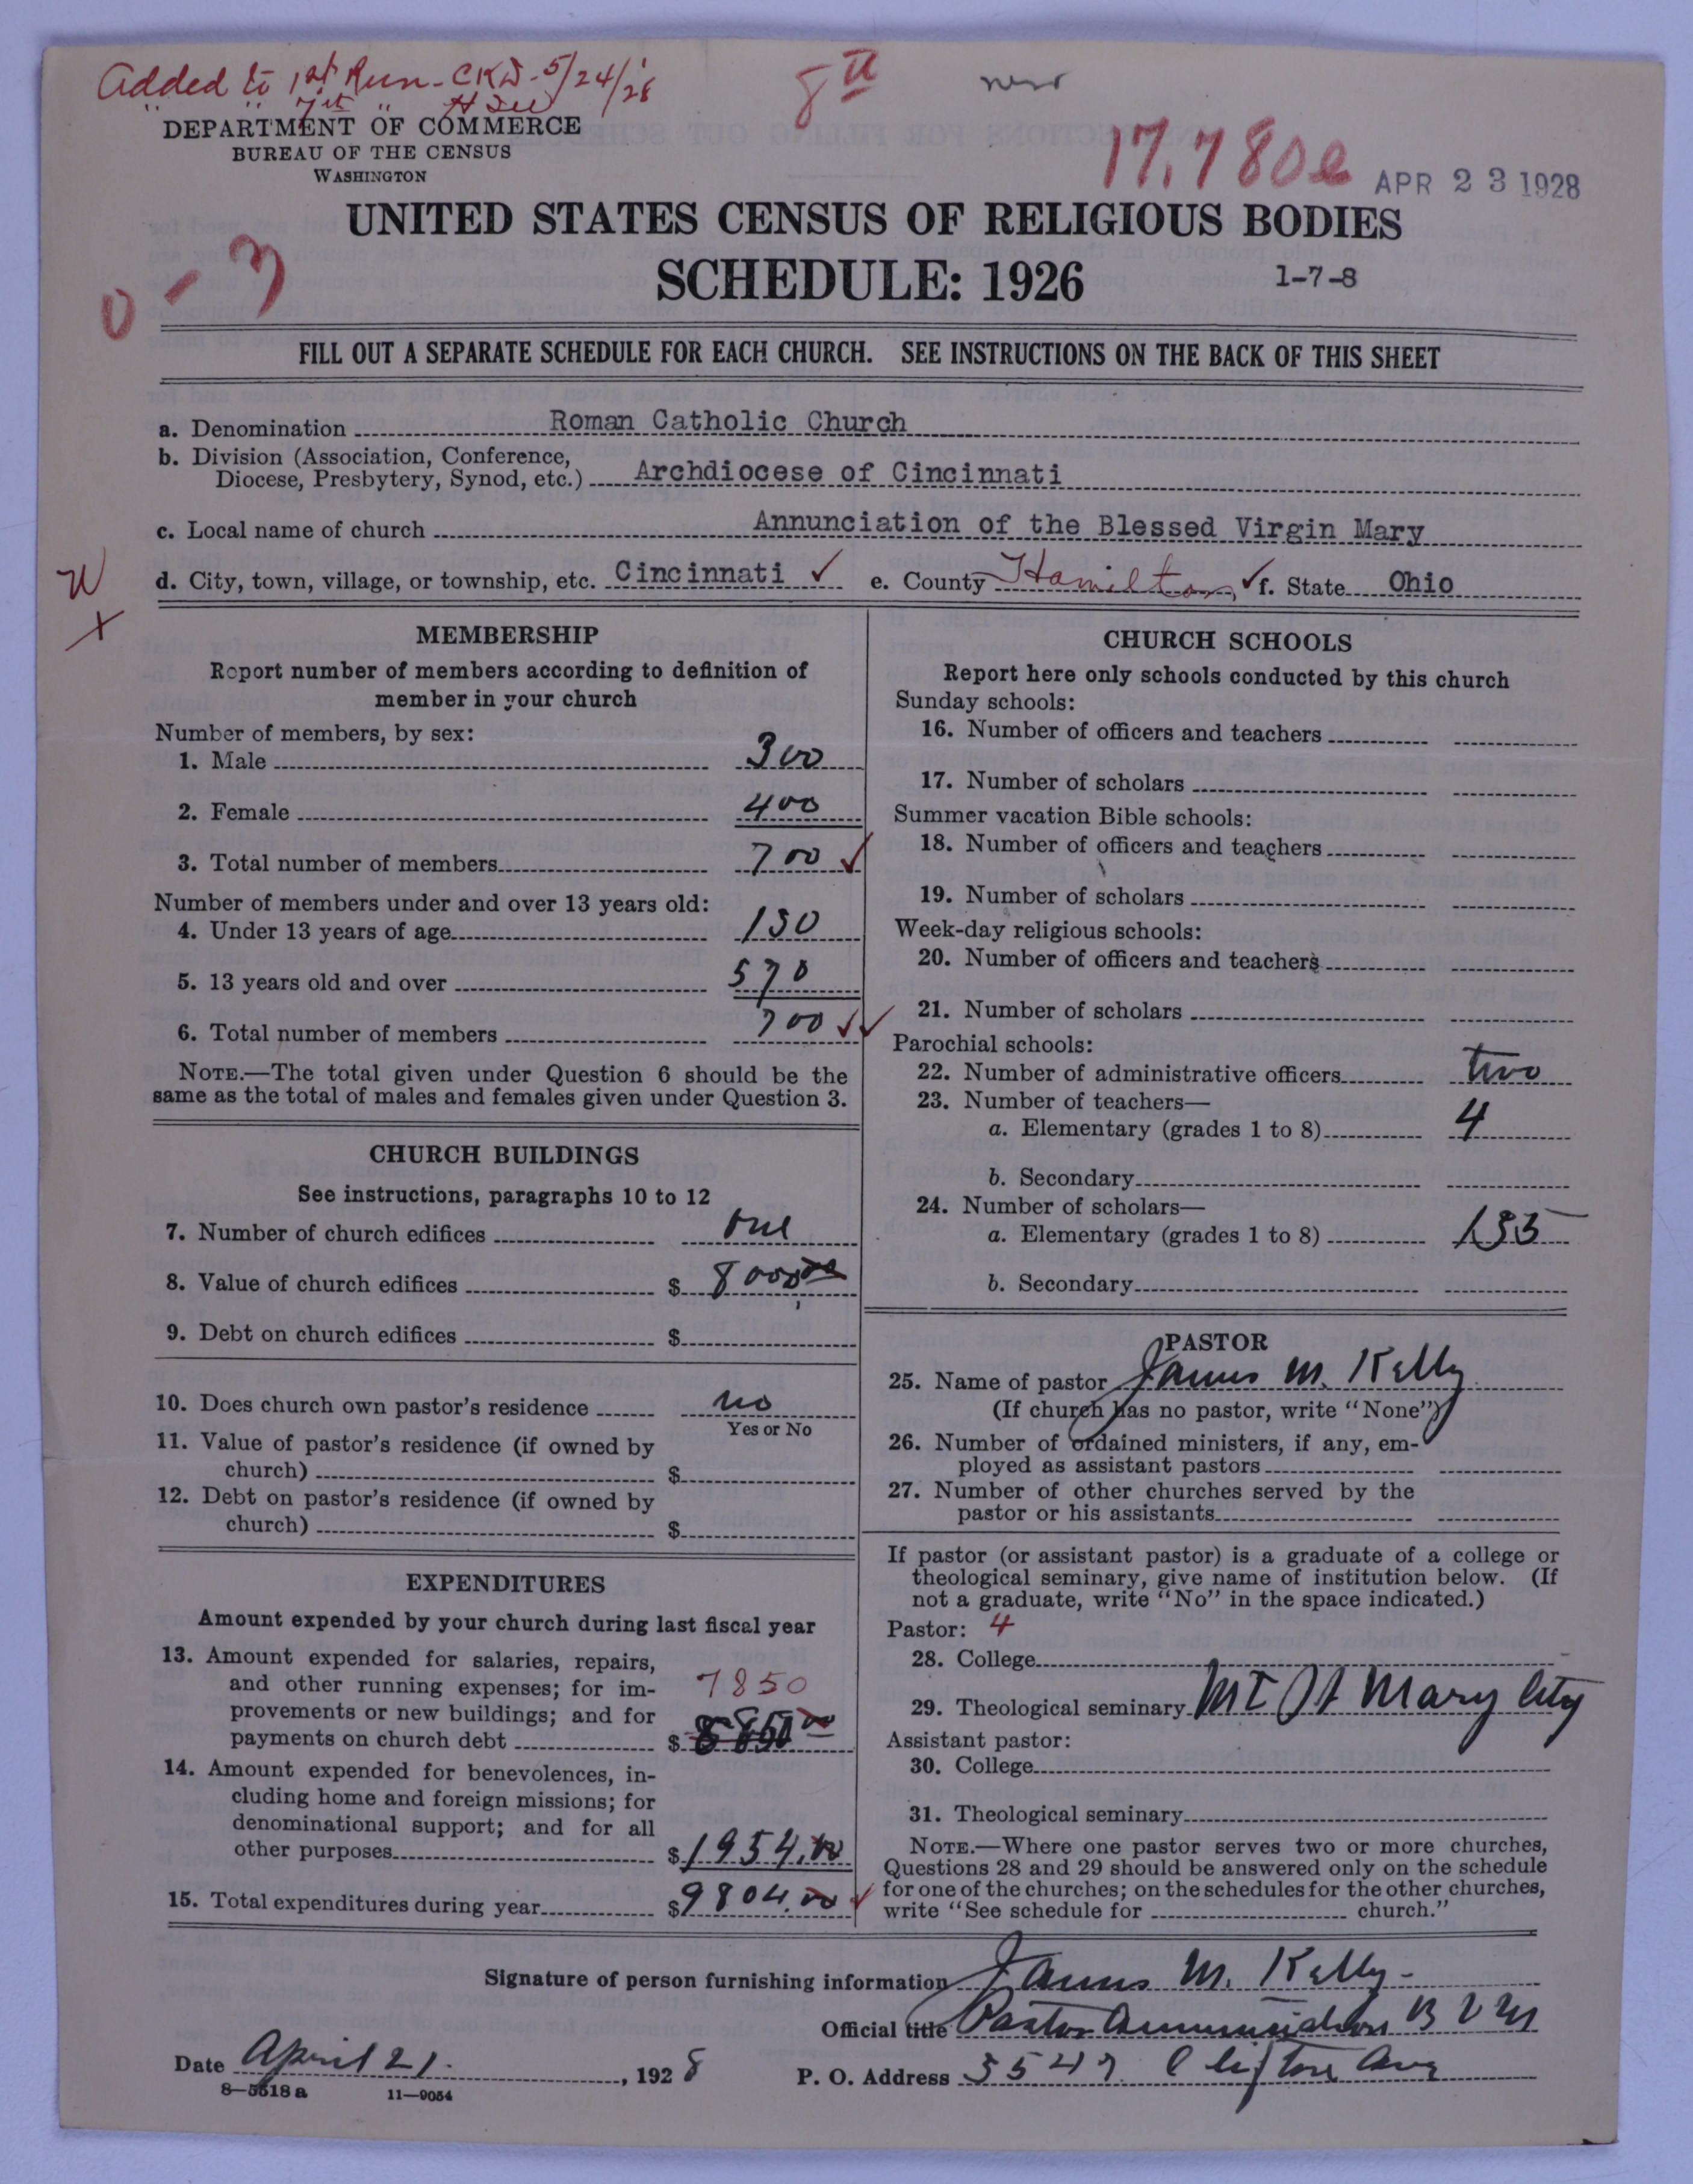 Added to 1st Run - CKW - 5/24/28
" " 7th "
8th
new
DEPARTMENT OF COMMERCE
BUREAU OF THE CENSUS
WASHINGTON
17,780e
APR 23 1928
UNITED STATES CENSUS OF RELIGIOUS BODIES
SCHEDULE: 1926
1-7-8
0-7
FILL OUT A SEPARATE SCHEDULE FOR EACH CHURCH. SEE INSTRUCTIONS ON THE BACK OF THIS SHEET
a. Denomination Roman Catholic Church
b. Division (Association, Conference,
Diocese, Presbytery, Synod, etc.) Archdiocese of Cincinnati
c. Local name of church Annunciation of the Blessed Virgin Mary
W
d. City, town, village, or township, etc. Cincinnati ✓ e. County Hamilton ✓ f. State Ohio
x
MEMBERSHIP
Report number of members according to definition of
member in your church
Number of members, by sex:
1. Male 300
2. Female 400
3. Total number of members 700 ✓
Number of members under and over 13 years old:
4. Under 13 years of age 130
5. 13 years old and over 570
6. Total number of members 700 ✓✓
NOTE.—The total given under Question 6 should be the
same as the total of males and females given under Question 3.
CHURCH BUILDINGS
See instructions, paragraphs 10 to 12
7. Number of church edifices one
8. Value of church edifices $ 8000.00
9. Debt on church edifices $
10. Does church own pastor's residence no
Yes or No
11. Value of pastor's residence (if owned by
church) $
12. Debt on pastor's residence (if owned by
church) $
EXPENDITURES
Amount expended by your church during last fiscal year
13. Amount expended for salaries, repairs,
and other running expenses; for im-
7850
provements or new buildings; and for
payments on church debt $
14. Amount expended for benevolences, in-
cluding home and foreign missions; for
denominational support; and for all
other purposes $ 1954.00
15. Total expenditures during year $ 9804.00 ✓
CHURCH SCHOOLS
Report here only schools conducted by this church
Sunday schools:
16. Number of officers and teachers
17. Number of scholars
Summer vacation Bible schools:
18. Number of officers and teachers
19. Number of scholars
Week-day religious schools:
20. Number of officers and teachers
21. Number of scholars
Parochial schools:
22. Number of administrative officers two
23. Number of teachers—
a. Elementary (grades 1 to 8) 4
b. Secondary
24. Number of scholars—
a. Elementary (grades 1 to 8) 135
b. Secondary
PASTOR
25. Name of pastor James M. Kelly
(If church has no pastor, write "None")
26. Number of ordained ministers, if any, em-
ployed as assistant pastors
27. Number of other churches served by the
pastor or his assistants
If pastor (or assistant pastor) is a graduate of a college or
theological seminary, give name of institution below. (If
not a graduate, write "No" in the space indicated.)
Pastor: 4
28. College
29. Theological seminary Mt St Mary City
Assistant pastor:
30. College
31. Theological seminary
NOTE.—Where one pastor serves two or more churches,
Questions 28 and 29 should be answered only on the schedule
for one of the churches; on the schedules for the other churches,
write "See schedule for church."
Signature of person furnishing information James M. Kelly
Official title Pastor Annunciation B V M
Date April 21, 1928 P. O. Address 3547 Clifton Ave
8—5518 a 11—9054